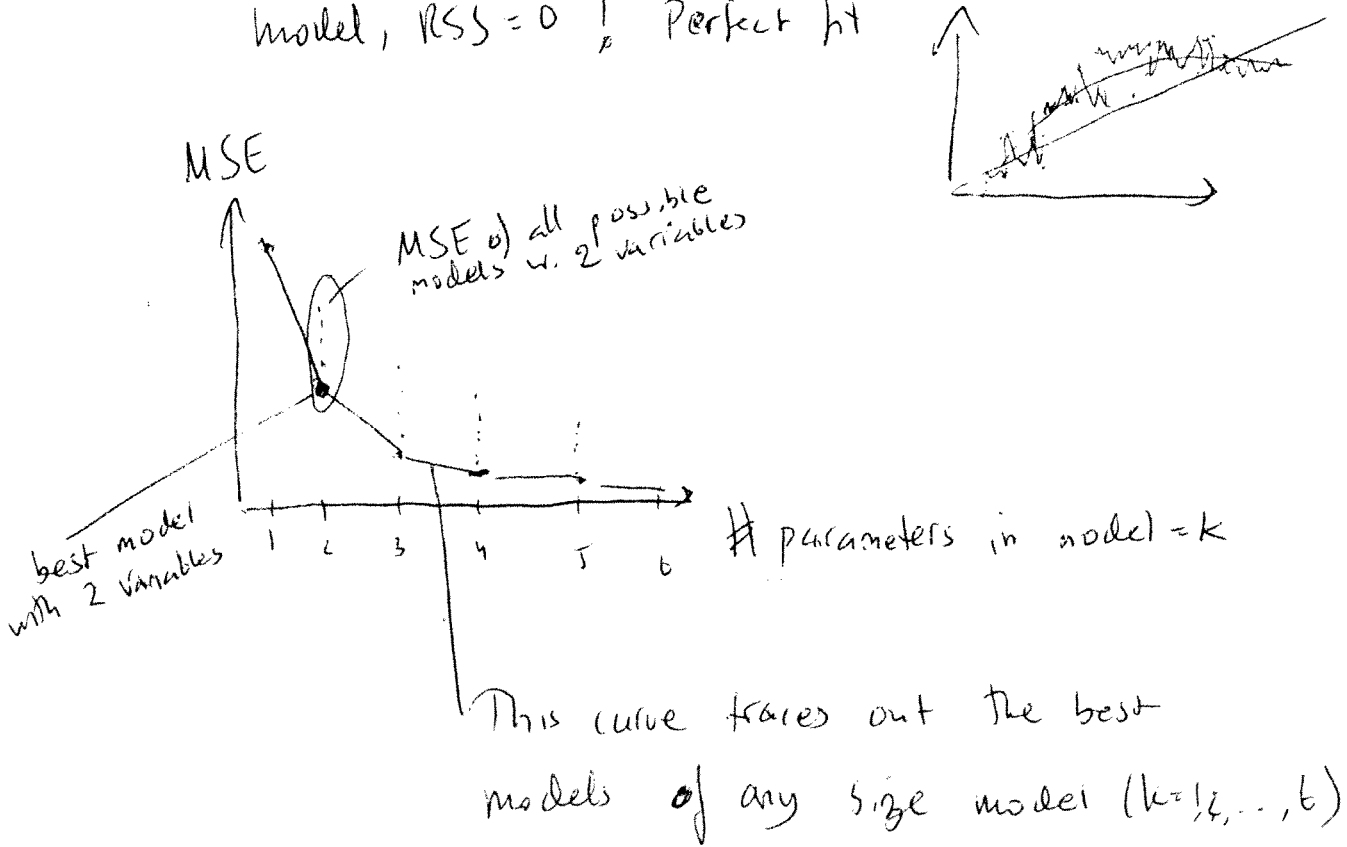 model, RSS = 0 ! Perfect fit
MSE
MSE of all possible
models w. 2 variables
best model
with 2 variables
1 2 3 4 5 6
# parameters in model = k
This curve traces out the best
models of any size model (k=1,2,...,6)